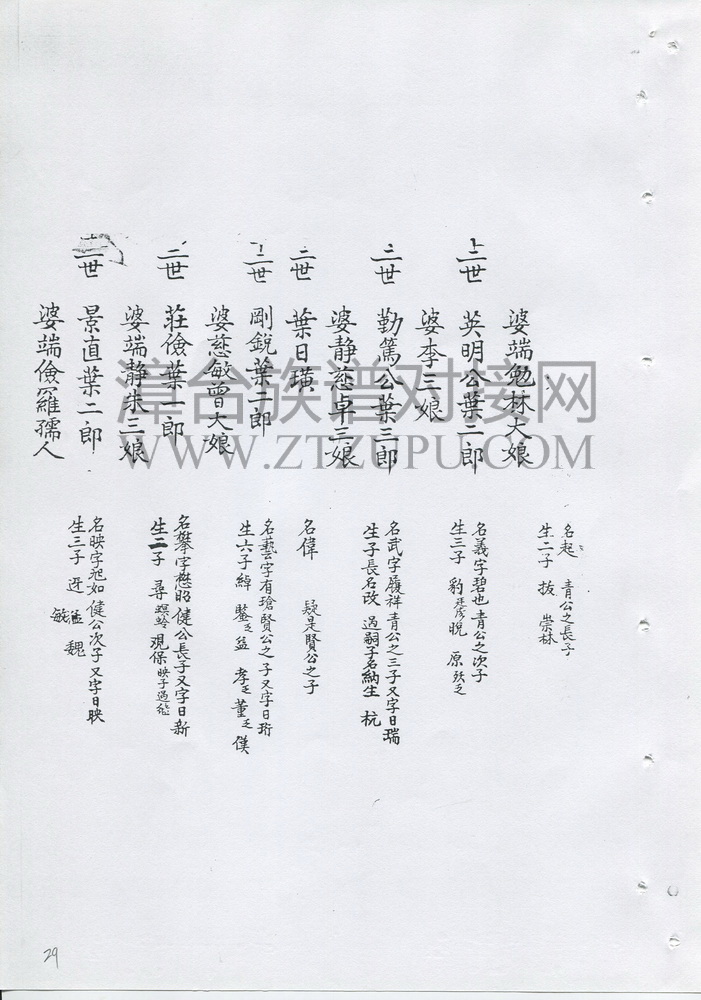 婆端勉林大娘
名起 青公之長子
生二子 拔 崇林
二世 英明公葉二郎
婆李三娘
名義字碧也青公之次子
生三子 豹 晚 原
二世 勤篤公葉三郎
婆静慈卓三娘
名武字履祥青公之三子又字日瑞
生子長名改 過嗣子名納生 杭
二世 葉日璜
名偉 疑是賢公之子
二世 剛銳葉二郎
婆慈敏曾大娘
名藝字有瑲賢公之子又字日珩
生六子綽 鏊乏 益 孝乏 董乏 僕
二世 莊儉葉一郎
婆端静朱三娘
名攀字懋昭健公長子又字日新
生二子 尋 現保
二世 景直葉二郎
婆端儉羅孺人
名映字旭如健公次子又字日映
生三子 迓 敏 魏
漳台族谱对接网
WWW.ZTZUPU.COM
29